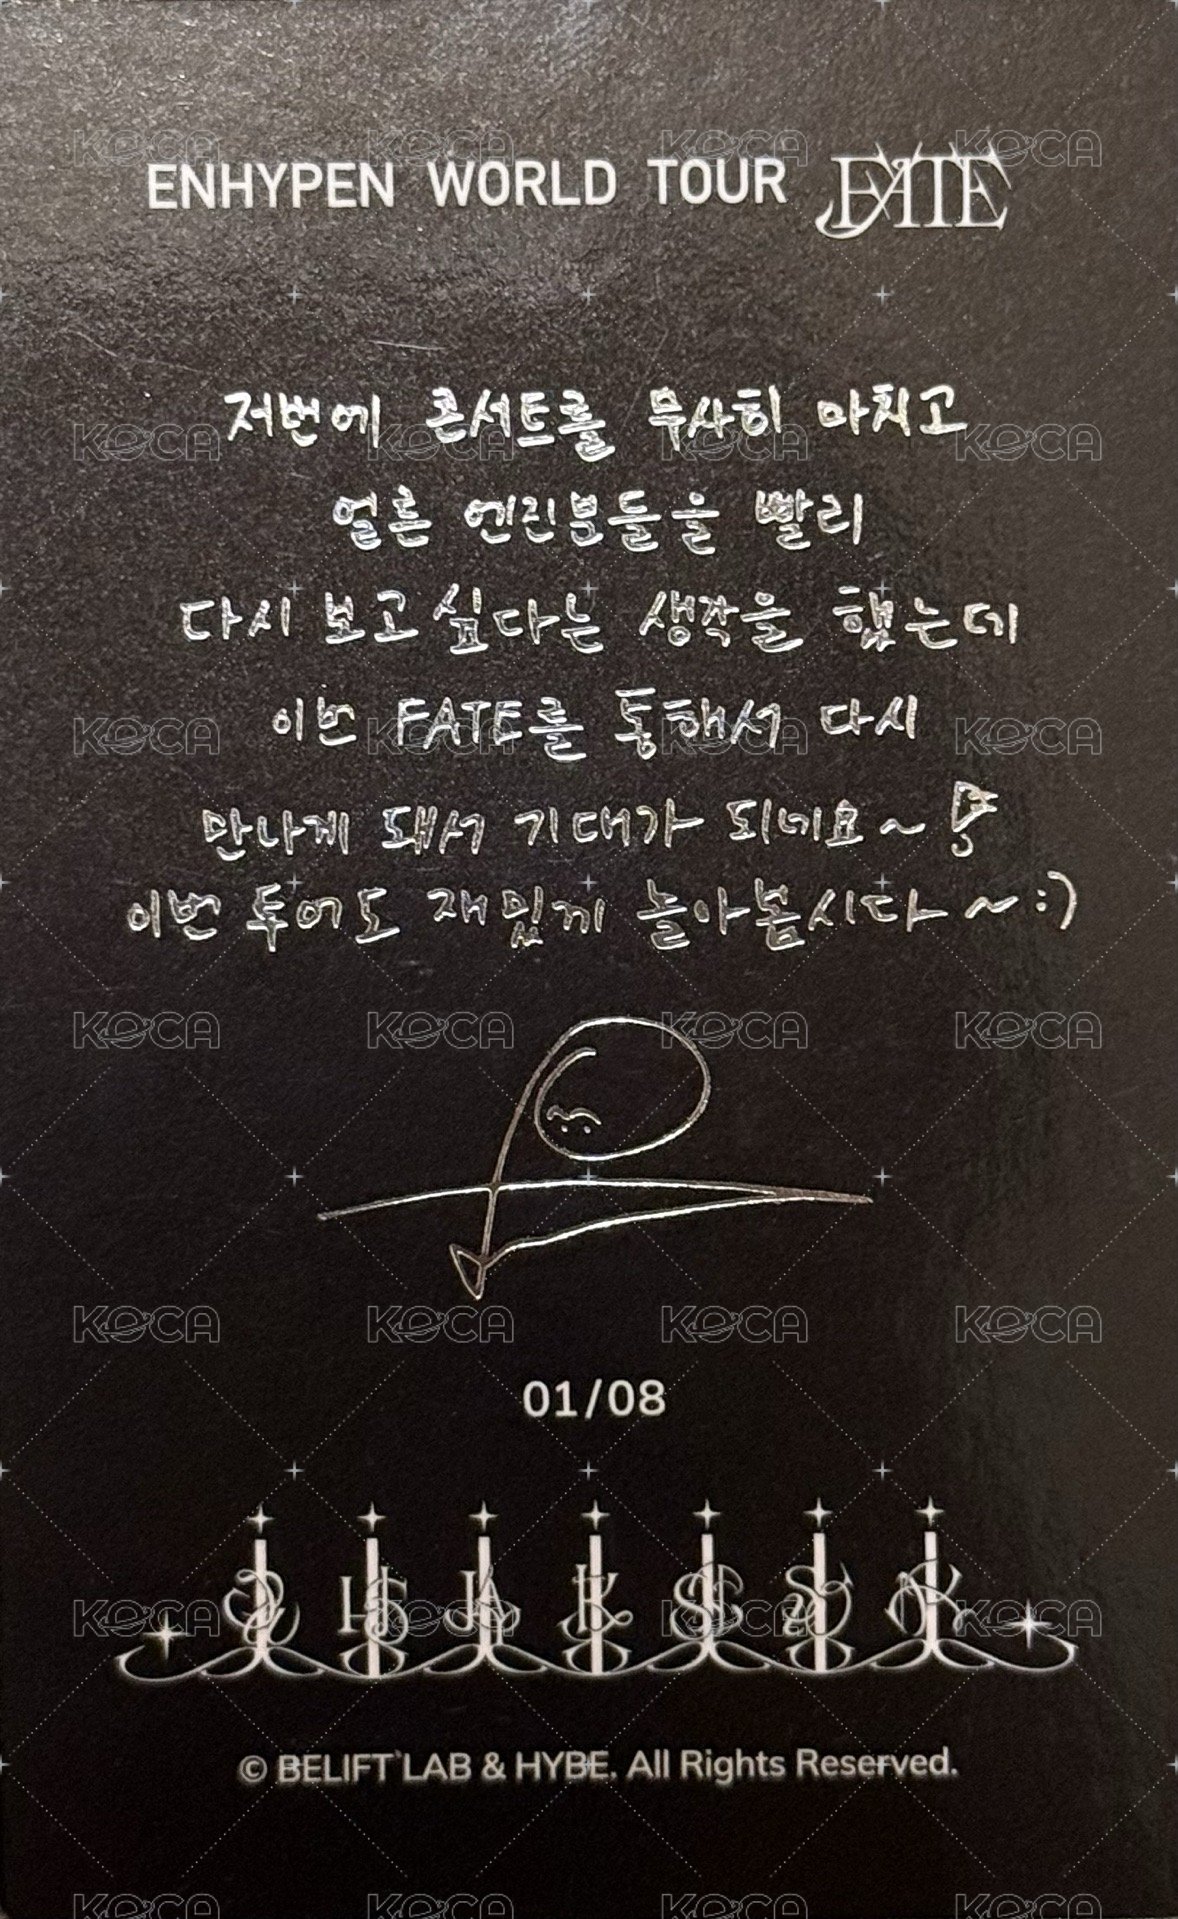 ENHYPEN WORLD TOUR FATE
저번에 콘서트를 무사히 마치고
얼른 엔진분들을 빨리
다시 보고싶다는 생각을 했는데
이번 FATE를 통해서 다시
만나게 돼서 기대가 되네요~
이번 투어도 재밌게 놀아봅시다~:)
01/08
© BELIFT LAB & HYBE. All Rights Reserved.
KOCA